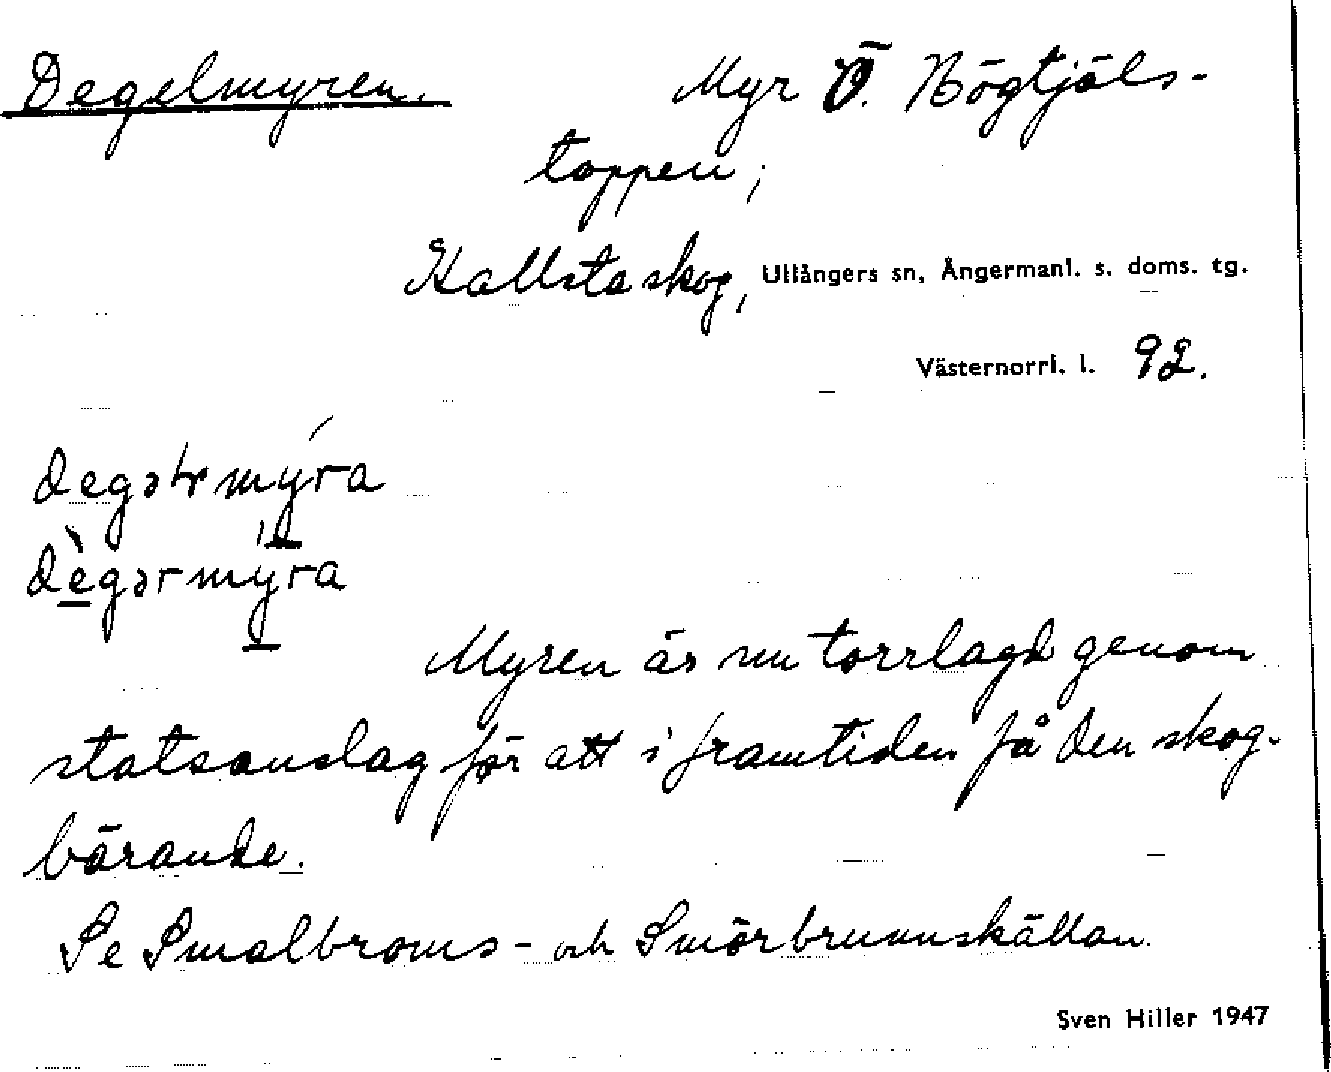 Degelmyren. Myr Ö. Högtjäls-
toppen;
Kallstaskog, Ullångers sn, Ångermanl. s. doms. tg.
Västernorrl. l. 92.
degərmyra
Myren är nu torrlagd genom
statsanslag för att i framtiden få den skog-
bärande.
Se Smalbroms- och Smörbrunnskällan.
Sven Hiller 1947